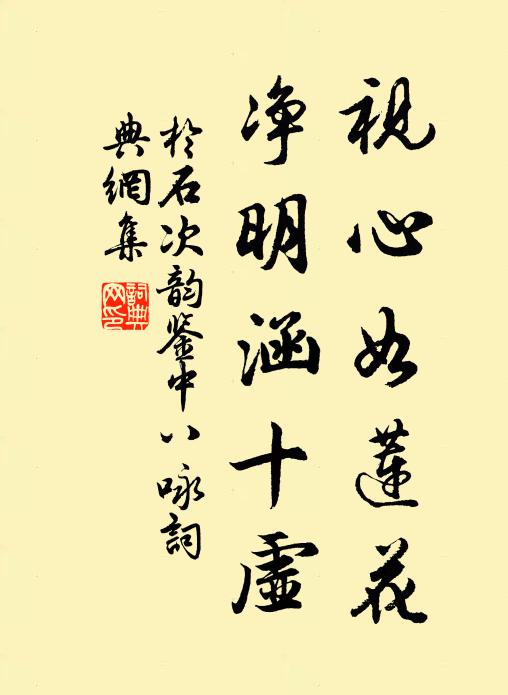 視心如蓮花
净明涵十虛
於石次韵鉴中八咏詞
典網集
詞典
网印